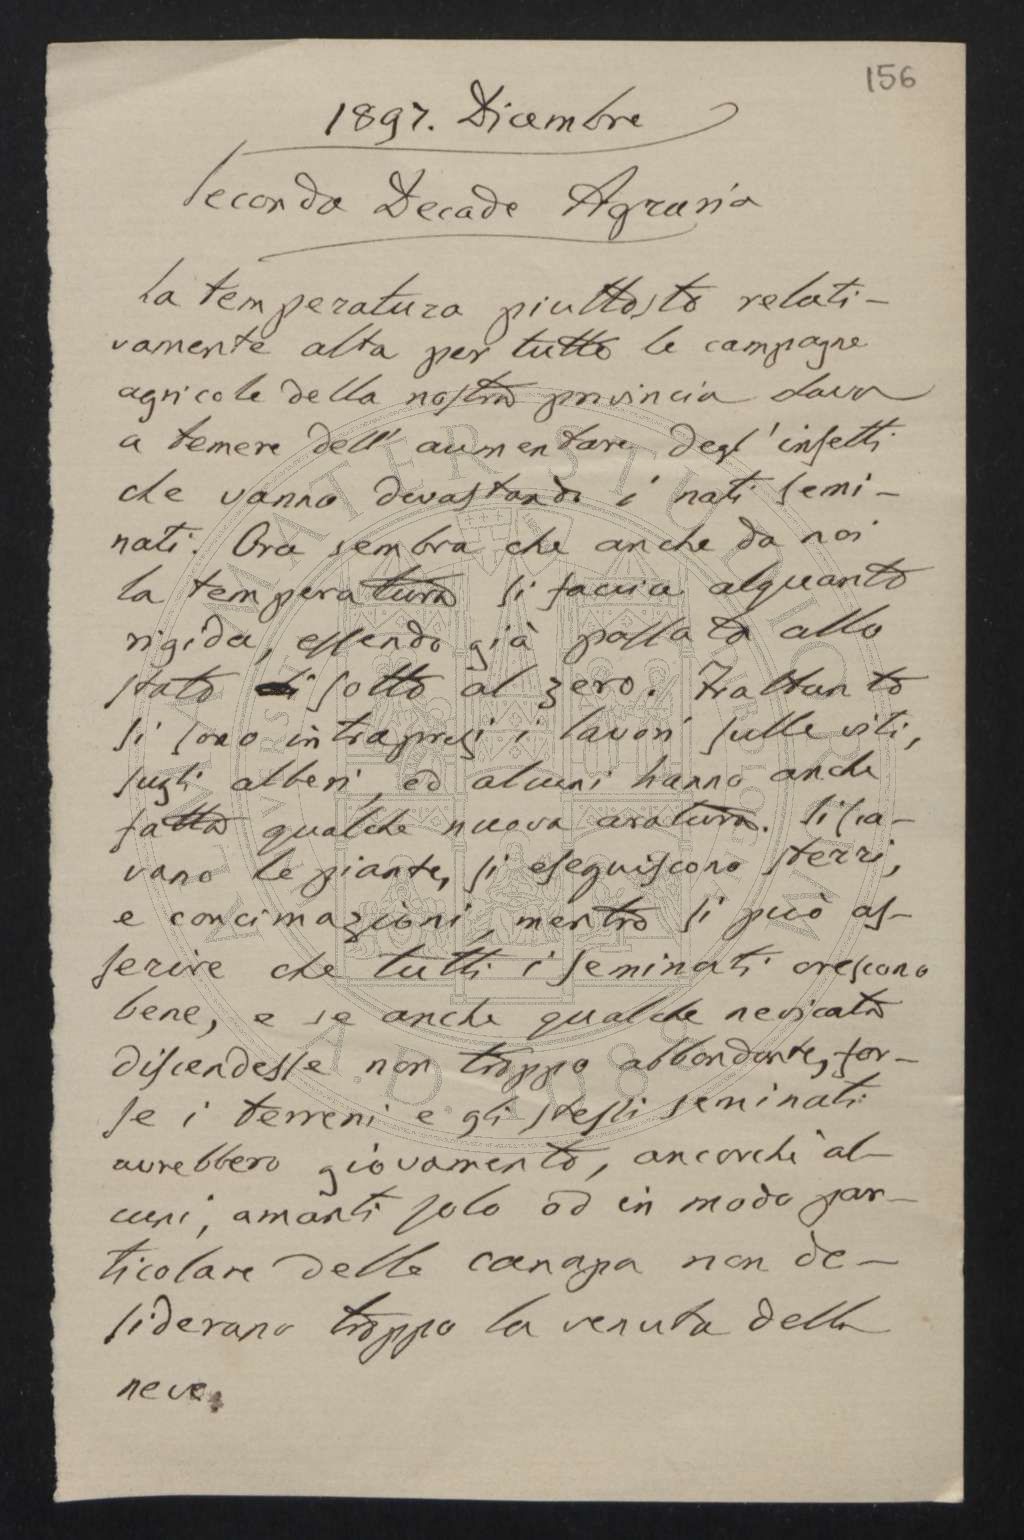 156
1897. Dicembre
Seconda Decade Agraria
La temperatura piuttosto relati-
vamente alta per tutte le campagne
agricole della nostra provincia dava
a temere dell'aumentare degl'insetti
che vanno devastando i nati semi-
nati. Ora sembra che anche da noi
la temperatura si faccia alquanto
rigida, essendo già passata allo
stato di sotto al zero. Frattanto
si sono intrapresi i lavori sulle viti,
sugli alberi, ed alcuni hanno anche
fatto qualche nuova aratura. Si sca-
vano le piante, si eseguiscono sterri,
e concimazioni, mentre si può as-
serire che tutti i seminati crescono
bene, e se anche qualche nevicata
discendesse non troppo abbondante, for-
se i terreni e gli stessi seminati
avrebbero giovamento, ancorchè al-
cuni, amanti solo od in modo par-
ticolare della canapa non de-
siderano troppo la venuta della
neve.
ALMA MATER STUDIORUM
A.D. 1088